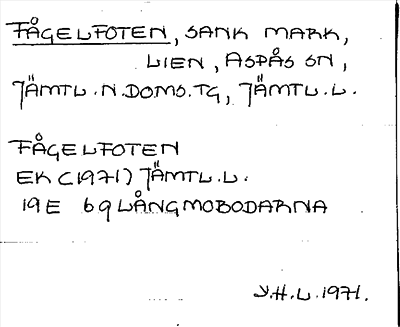 FÅGELFOTEN, SANK MARK,
LIEN, ASPÅS SN,
JÄMTL.N.DOMS.TG, JÄMTL.L.
FÅGELFOTEN
EK (1971) JÄMTL.L.
19E 6g LÅNGMOBODARNA
Y.H.L.1971.